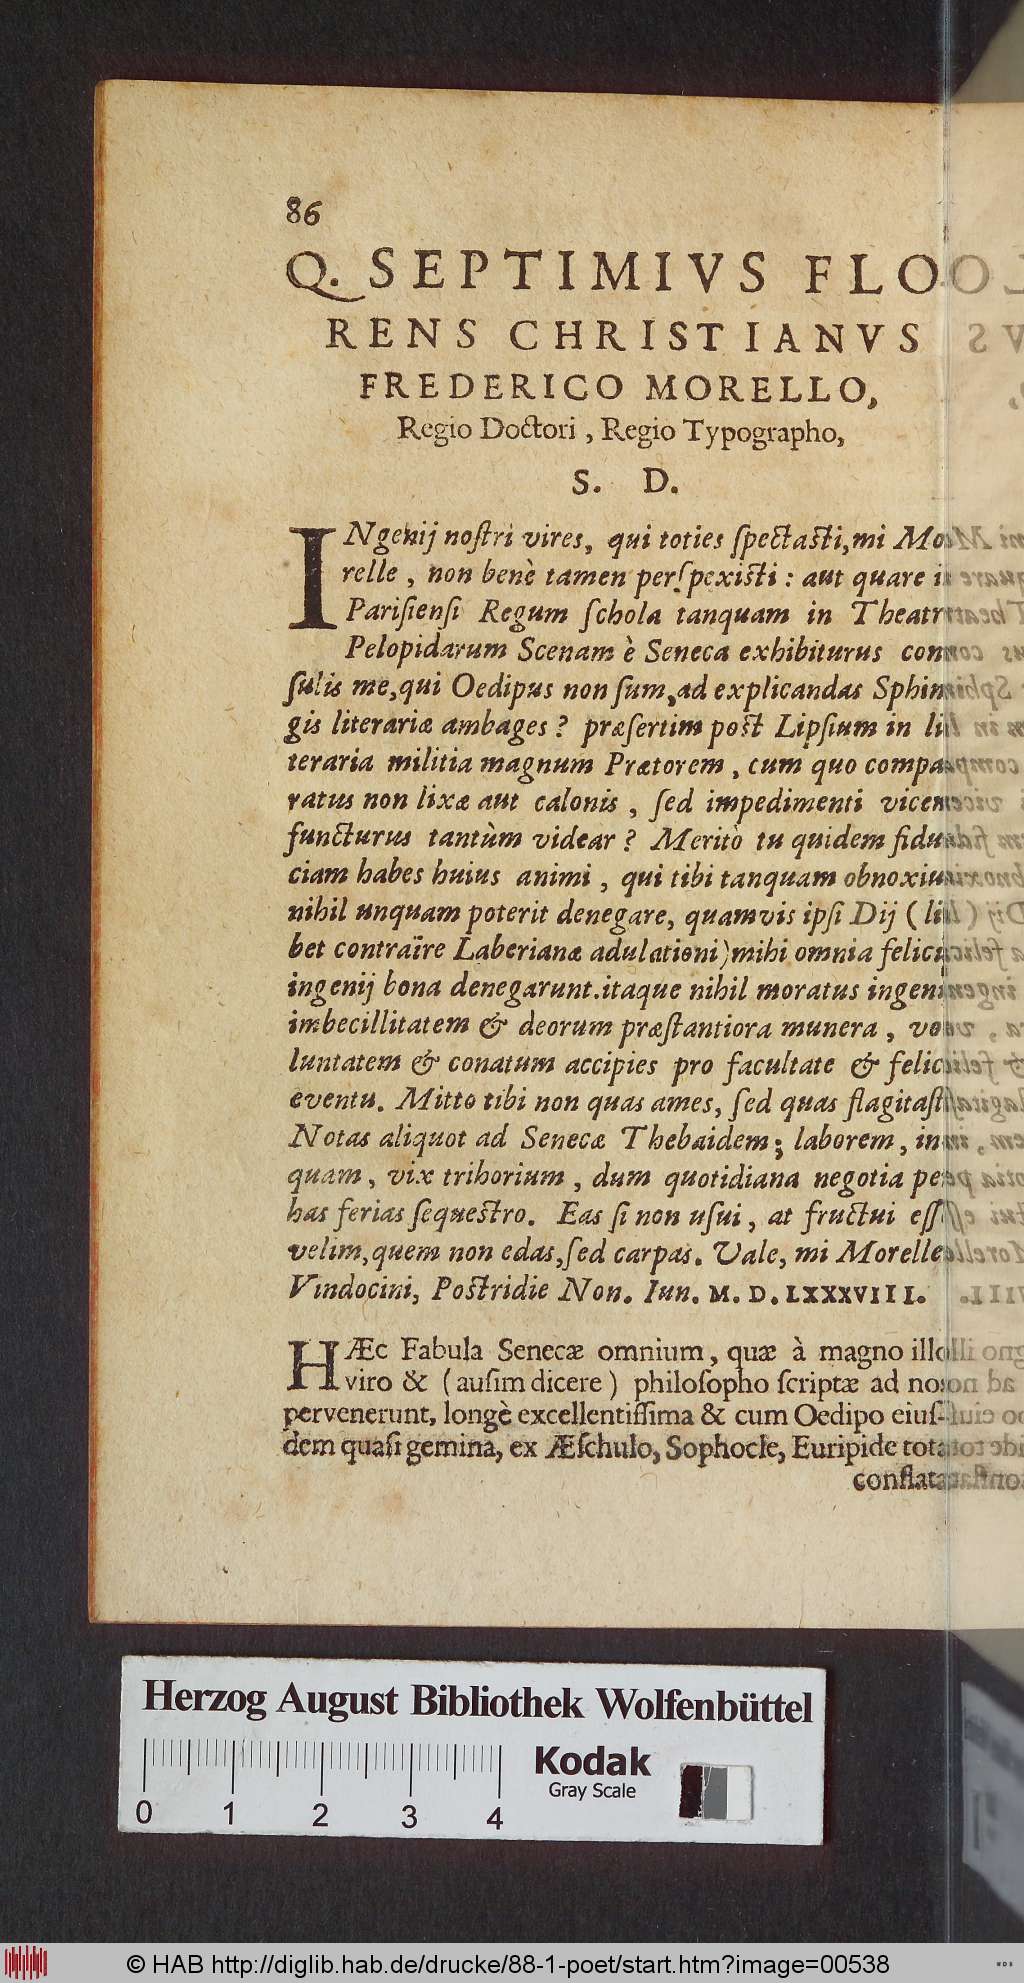 86
Q. SEPTIMIVS FLO
RENS CHRISTIANVS
FREDERICO MORELLO,
Regio Doctori, Regio Typographo,
S. D.
INgenij noſtri vires, qui toties ſpectaſti, mi Mo
relle, non benè tamen perſpexiſti: aut quare in
Pariſienſi Regum ſchola tanquam in Theatro
Pelopidarum Scenam è Seneca exhibiturus con
ſulis me, qui Oedipus non ſum, ad explicandas Sphin
gis literariæ ambages? præſertim poſt Lipſium in li
teraria militia magnum Prætorem, cum quo compa
ratus non lixæ aut calonis, ſed impedimenti vicem
functurus tantùm videar? Meritò tu quidem fidu
ciam habes huius animi, qui tibi tanquam obnoxius
nihil unquam poterit denegare, quamvis ipſi Dij (li
bet contraïre Laberianæ adulationi) mihi omnia felicis
ingenij bona denegarunt. itaque nihil moratus ingenij
imbecillitatem & deorum præſtantiora munera, vo
luntatem & conatum accipies pro facultate & felici
eventu. Mitto tibi non quas ames, ſed quas flagitaſti
Notas aliquot ad Senecæ Thebaidem; laborem, in
quam, vix trihorium, dum quotidiana negotia per
has ferias ſequeſtro. Eas ſi non uſui, at fructui eſſe
velim, quem non edas, ſed carpas. Vale, mi Morelle
Vindocini, Poſtridie Non. Iun. M. D. LXXXVIII.
HÆc Fabula Senecæ omnium, quæ à magno illo
viro & (auſim dicere) philoſopho ſcriptæ ad nos
pervenerunt, longè excellentiſſima & cum Oedipo eiuſ-
dem quaſi gemina, ex Æſchulo, Sophocle, Euripide tota
conflata
Herzog August Bibliothek Wolfenbüttel
Kodak
Gray Scale
0 1 2 3 4
© HAB http://diglib.hab.de/drucke/88-1-poet/start.htm?image=00538